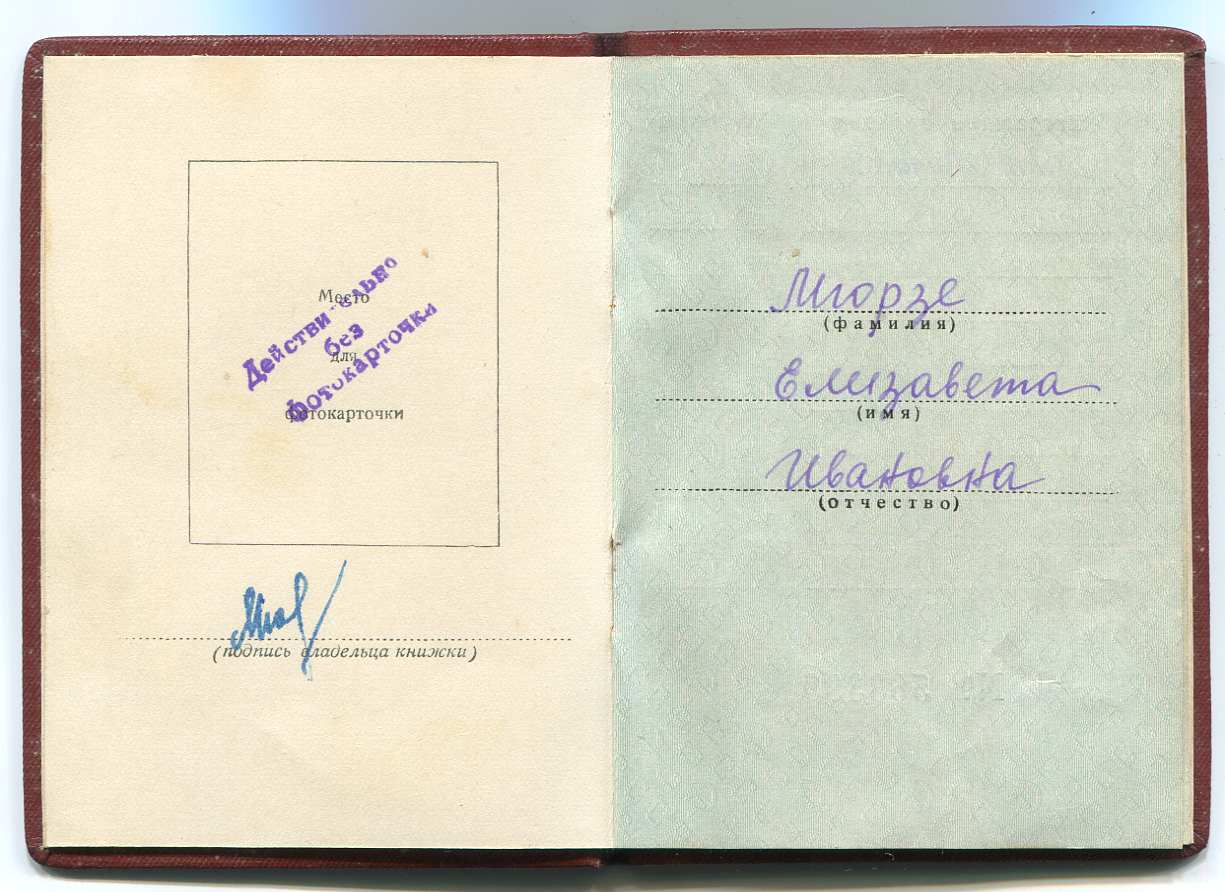 Место
для
фотокарточки
Действительно
без
фотокарточки
(подпись владельца книжки)
Мюрзе
(фамилия)
Елизавета
(имя)
Ивановна
(отчество)